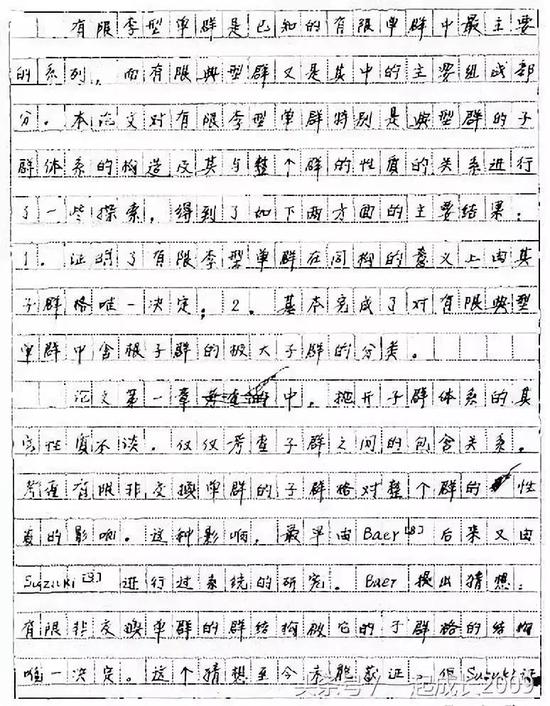 有限李型单群是已知的有限单群中最主要
的系列，而有限典型群又是其中的主要组成部
分。本论文对有限李型单群特别是典型群的子
群体系的构造及其与整个群的性质的关系进行
了一些探索，得到了如下两方面的主要结果：
1．证明了有限李型单群在同构的意义上由其
子群格唯一决定；2．基本完成了对有限典型
单群中含根子群的极大子群的分类。
论文第一章中，抛开子群体系的其
它性质不谈，仅仅考查子群之间的包含关系，
考查有限非交换单群的子群格对整个群的性
质的影响。这种影响，最早由Baer[8]后来又由
Suzuki[9]进行过系统的研究。Baer提出猜想：
有限非交换单群的群结构被它的子群格的结构
唯一决定。这个猜想至今未能获证。但Suzuki证
头条号/一起成长2009